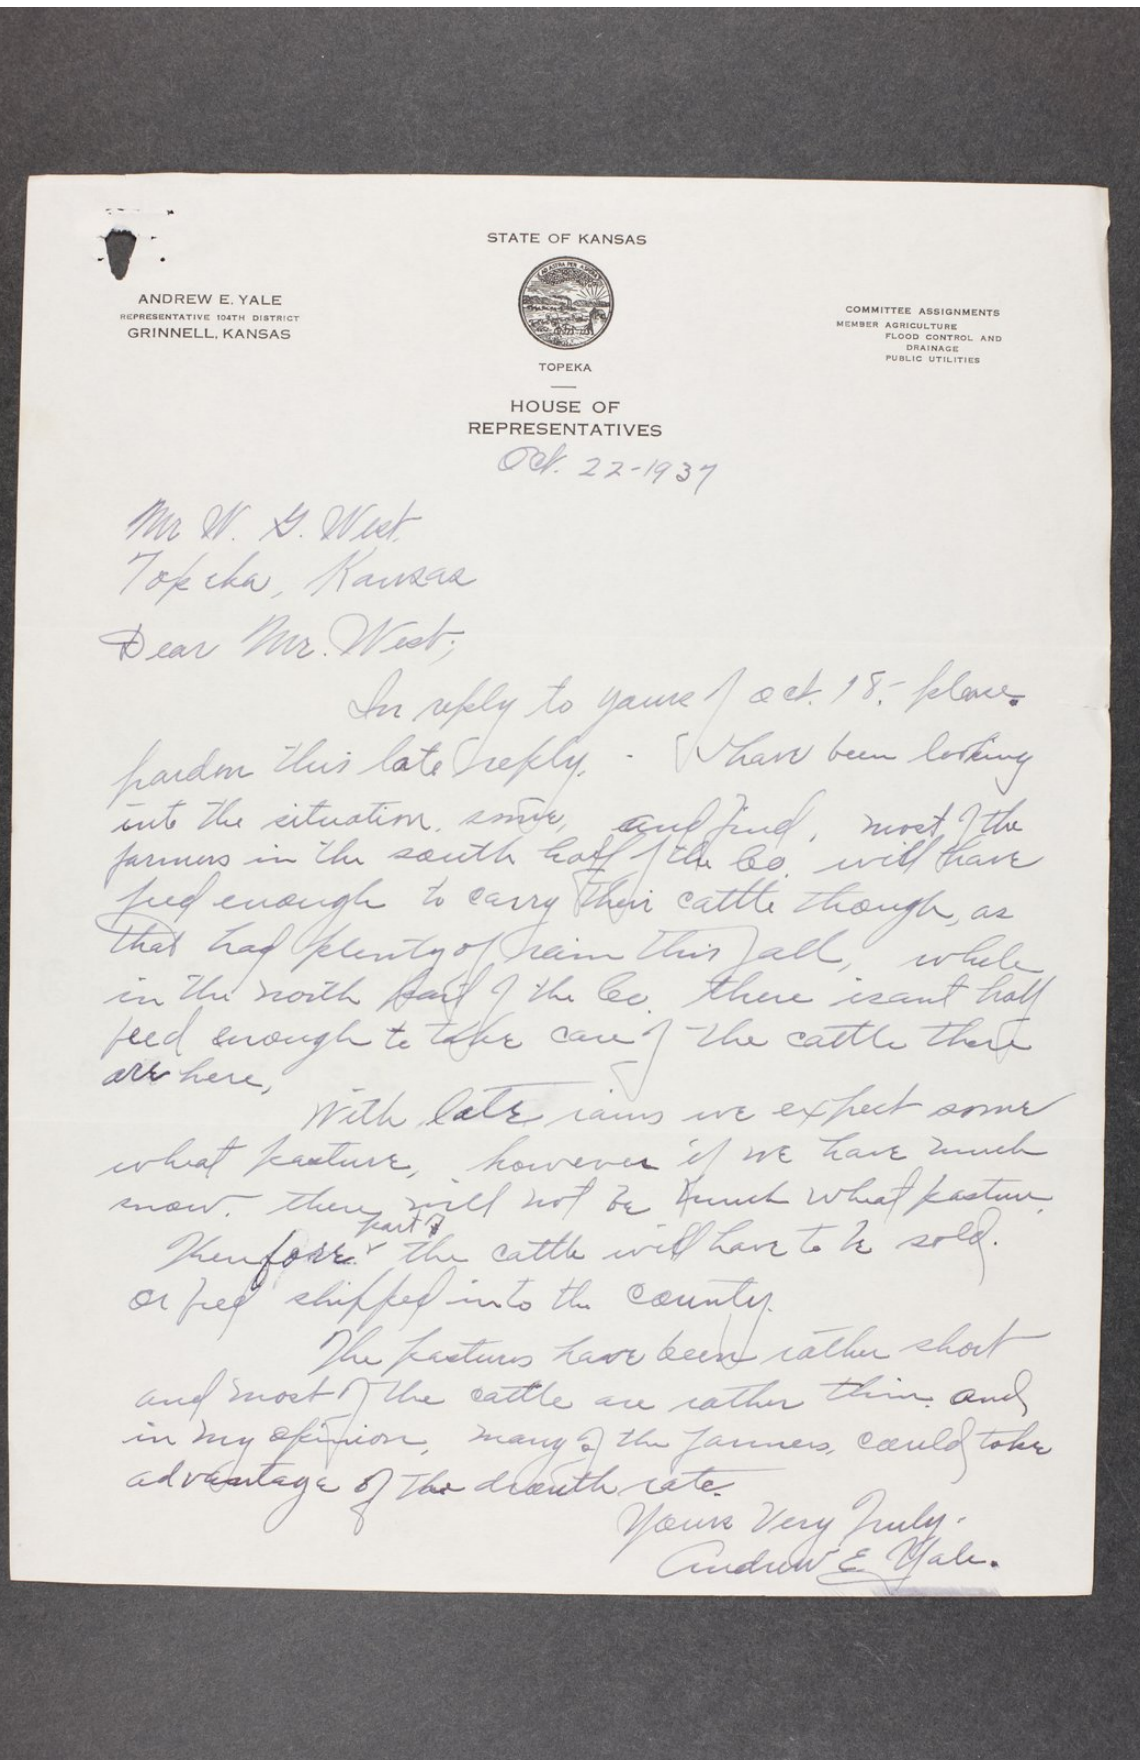 STATE OF KANSAS
ANDREW E. YALE
REPRESENTATIVE 104TH DISTRICT
GRINNELL, KANSAS
COMMITTEE ASSIGNMENTS
MEMBER AGRICULTURE
FLOOD CONTROL AND
DRAINAGE
PUBLIC UTILITIES
AD ASTRA PER ASPERA
TOPEKA
HOUSE OF
REPRESENTATIVES
Oct. 22-1937
Mr W. G. West.
Topeka, Kansas
Dear Mr. West;
In reply to yours of Oct. 18. - please.
pardon this late reply. - I have been looking
into the situation. some, and find, most of the
farmers in the south half of the Co. will have
feed enough to carry their cattle though, as
that had plenty of rain this fall, while
in the north part of the Co. there isant half
feed enough to take care of the cattle there
are here,
With late rains we expect some
wheat pasture, however if we have much
snow. there will not be much wheat pasture.
part of
Therefore the cattle will have to be sold.
or feed shipped into the county.
The pastures have been rather short
and most of the cattle are rather thin. and
in my opinion, many of the farmers, could take
advantage of the drouth rate.
Yours Very Truly.
Andrew E. Yale.